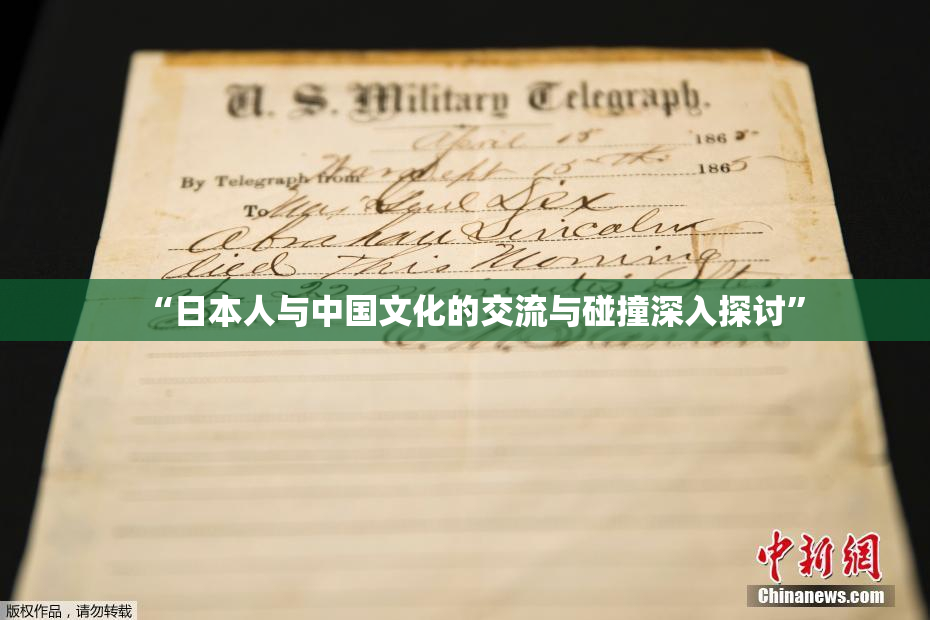 U. S. Military Telegraph.
April 15 1865
By Telegraph from War Dept 15th 1865
To Maj Genl Dix
Abraham Lincoln
died This Morning
at 22 minutes after
“日本人与中国文化的交流与碰撞深入探讨”
E. M. Stanton
中新網
Chinanews.com
版权作品，请勿转载